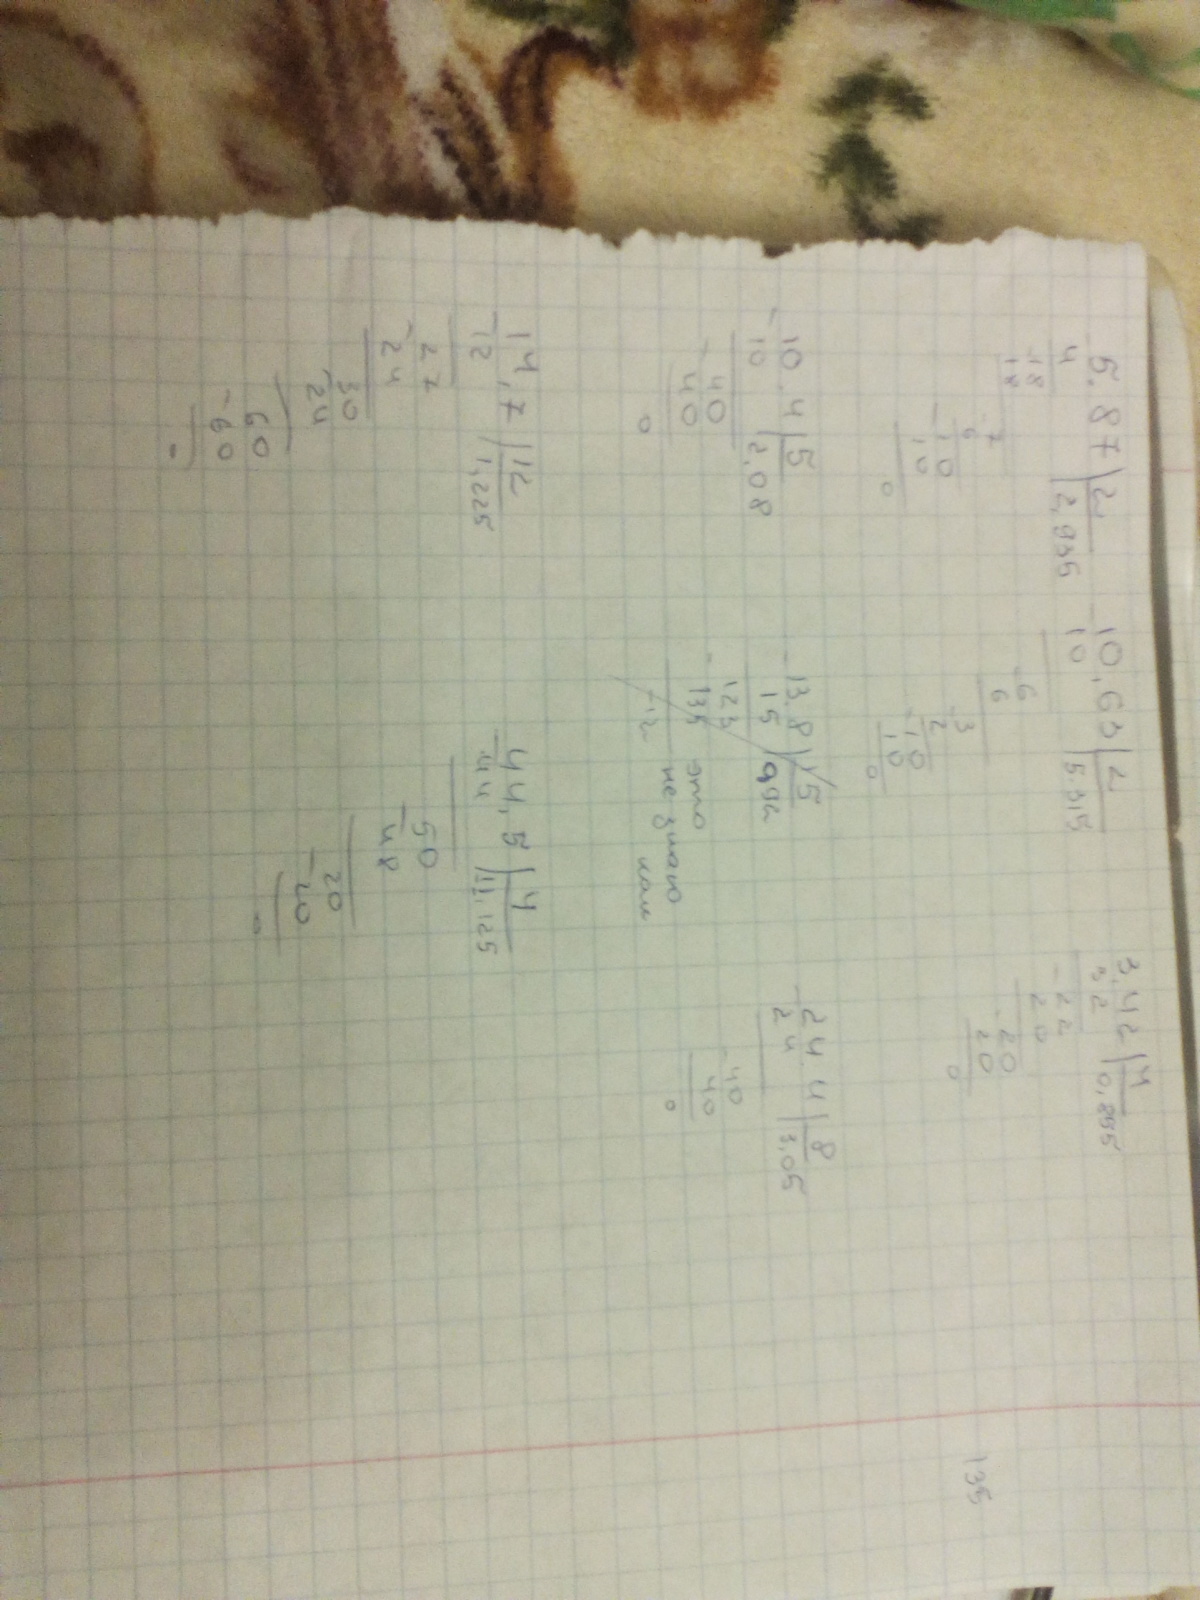 5.87 2
4 2,935
18
18
7
6
10
10
0
10,63 2
10 5.315
6
6
3
2
10
10
0
3,42 4
32 0,855
22
20
20
20
0
10.4 5
10 2,08
40
40
0
13.8 15
15
123
135
это
не знаю
как
24 4 8
24 3,05
40
40
0
14,7 12
12 1,225
27
24
30
24
60
60
44,5 4
44 11,125
50
48
20
20
135